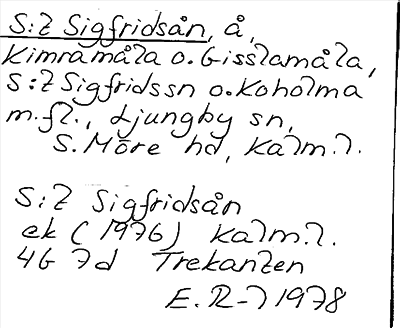 S:t Sigfridsån, å,
Kimramåla o. Gisslamåla,
S:t Sigfridssn o. Koholma
m.fl., Ljungby sn,
S. Möre hd, Kalm.l.
S:t Sigfridsån
ek (1976) Kalm.l.
4G 7d Trekanten
E. R-l 1978